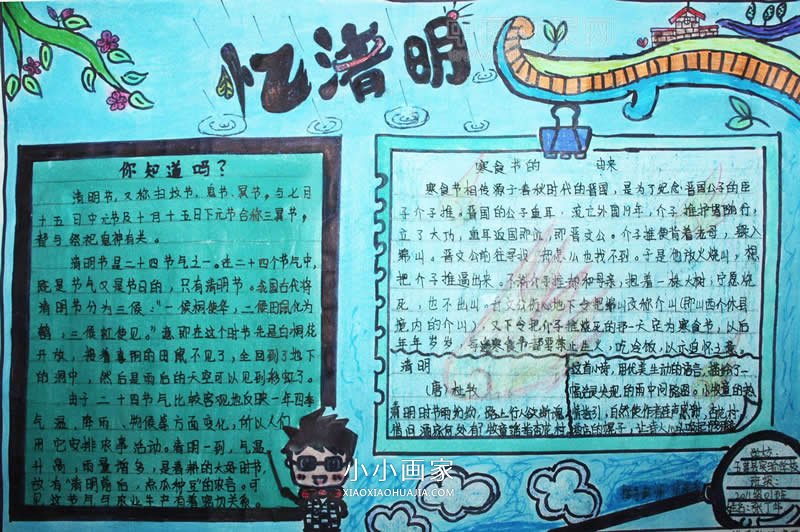 忆渚明
你知道吗？
清明节,又称扫坟节、鬼节、冥节,与七月
十五日中元节及十月十五日下元节合称三冥节,
都与祭祀鬼神有关。
清明节是二十四节气之一。在二十四个节气中,
既是节气又是节日的,只有清明节。我国古代将
清明节分为三候:"一候桐始华,二候田鼠化为
鹌,三候虹始见。"意即在这个时节先是白桐花
开放,接着喜阴的田鼠不见了,全回到了地下
的洞中,然后是雨后的天空可以见到彩虹了。
由于二十四节气比较客观地反映一年四季
气温、降雨、物候等方面变化,所以人们
用它安排农事活动。清明一到,气温
升高,雨量增多,是春耕的大好时节,
故有"清明前后,点瓜种豆"的农谚。可
见这节气与农业生产有着密切关系。
寒食书的 由来
寒食节相传源于春秋时代的晋国,是为了纪念晋国公子的臣
子介子推。晋国的公子重耳,流亡外国19年,介子推护驾随行,
立了大功,重耳返国即位,即晋文公。介子推便背着老母,躲入
绵山。晋文公前往寻找,却怎么也找不到。于是他放火烧山,想
把介子推逼出来。不料介子推却和母亲,抱着一株大树,宁愿烧
死,也不出山。晋文公伤心地下令把绵山改称介山(即山西介休县
境内的介山),又下令把介子推烧死的那一天定为寒食节,以后
年年岁岁,每逢寒食节都要禁止生火,吃冷饭,以示追怀之意。
清明
(唐)杜牧
清明时节雨纷纷,路上行人欲断魂。
借问酒家何处有?牧童遥指杏花村。
这首小诗,用优美生动的语言,描绘了一
的雨中问路图。
小小画家
XIAOXIAOHUAJIA.COM
学校:
班级:
姓名: